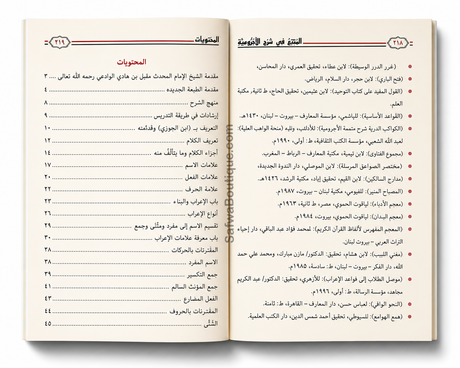 ٢١٨ الممتع في شرح الآجرومية
(غرر الدرر الوسيطة): لابن عطاء، تحقيق العمري، دار المحاسن،
(فتح الباري): لابن حجر، دار السلام، الرياض.
(القول المفيد على كتاب التوحيد): لابن عثيمين، تحقيق الحاج، ط ثانية، مكتبة
العلم.
(القواعد الأساسية): للهاشمي، مؤسسة المعارف – بيروت – لبنان، ١٤٣٠هـ.
(الكواكب الدرية شرح متممة الأجرومية): للأهدل،
لعبد الله الشعبي، مؤسسة الكتب الثقافية، ط: أولى، ١٩٩٠م.
(مجموع الفتاوى): لابن تيمية، مكتبة المعارف – الرباط – المغرب.
(مختصر الصواعق المرسلة): لابن الموصلي، دار الندوة الجديدة،
(مدارج السالكين): لابن القيم، تحقيق إياد، مكتبة الرشد، ١٤٢٦هـ.
(المصباح المنير): للفيومي، مكتبة لبنان – بيروت، ١٩٨٧م.
(معجم الأدباء): لياقوت الحموي، مصر، ط ثانية، ١٩٢٣م.
(معجم البلدان): لياقوت الحموي، بيروت، ١٩٨٤م.
(المعجم المفهرس لألفاظ القرآن الكريم): لمحمد فؤاد عبد الباقي، دار إحياء
التراث العربي – بيروت لبنان.
(مغني اللبيب): لابن هشام، تحقيق: الدكتور/ مازن مبارك، ومحمد علي حمد
الله، دار الفكر – بيروت – لبنان، ط: سادسة، ١٩٨٥م.
(موصل الطلاب إلى قواعد الإعراب): للأزهري، تحقيق: الدكتور/ عبد الكريم
مجاهد، مؤسسة الرسالة، ط: أولى، ١٩٩٦م.
(النحو الوافي): لعباس حسن، دار المعارف – القاهرة، ط: ثامنة.
(همع الهوامع): للسيوطي، تحقيق أحمد شمس الدين، دار الكتب العلمية.
SafwaBoutique.com
المحتويات ٢١٩
المحتويات
مقدمة الشيخ الإمام المحدث مقبل بن هادي الوادعي رحمه الله تعالى ... ٣
مقدمة الطبعة الجديدة ... ٤
منهج الشرح ... ٨
إرشادات في طريقة التدريس ... ٩
التعريف بـ (ابن آجروم) وبمقدمته ... ١٠
تعريف الكلام ... ١٢
أجزاء الكلام وما يتألَّف منه ... ١٤
علامات الاسم ... ١٧
علامات الفعل ... ٢٠
علامة الحرف ... ٢٢
باب الإعراب والبناء ... ٢٣
أنواع الإعراب ... ٢٦
تقسيم الاسم إلى مفرد ومثنَّى وجمع ... ٢٩
باب معرفة علامات الإعراب ... ٣٠
المُعْرَبات بالحركات ... ٣٨
الاسم المفرد ... ٣٨
جمع التكسير ... ٣٩
جمع المؤنث السالم ... ٤١
الفعل المضارع ... ٤٣
المُعْرَبات بالحروف ... ٤٤
المثنَّى ... ٤٥